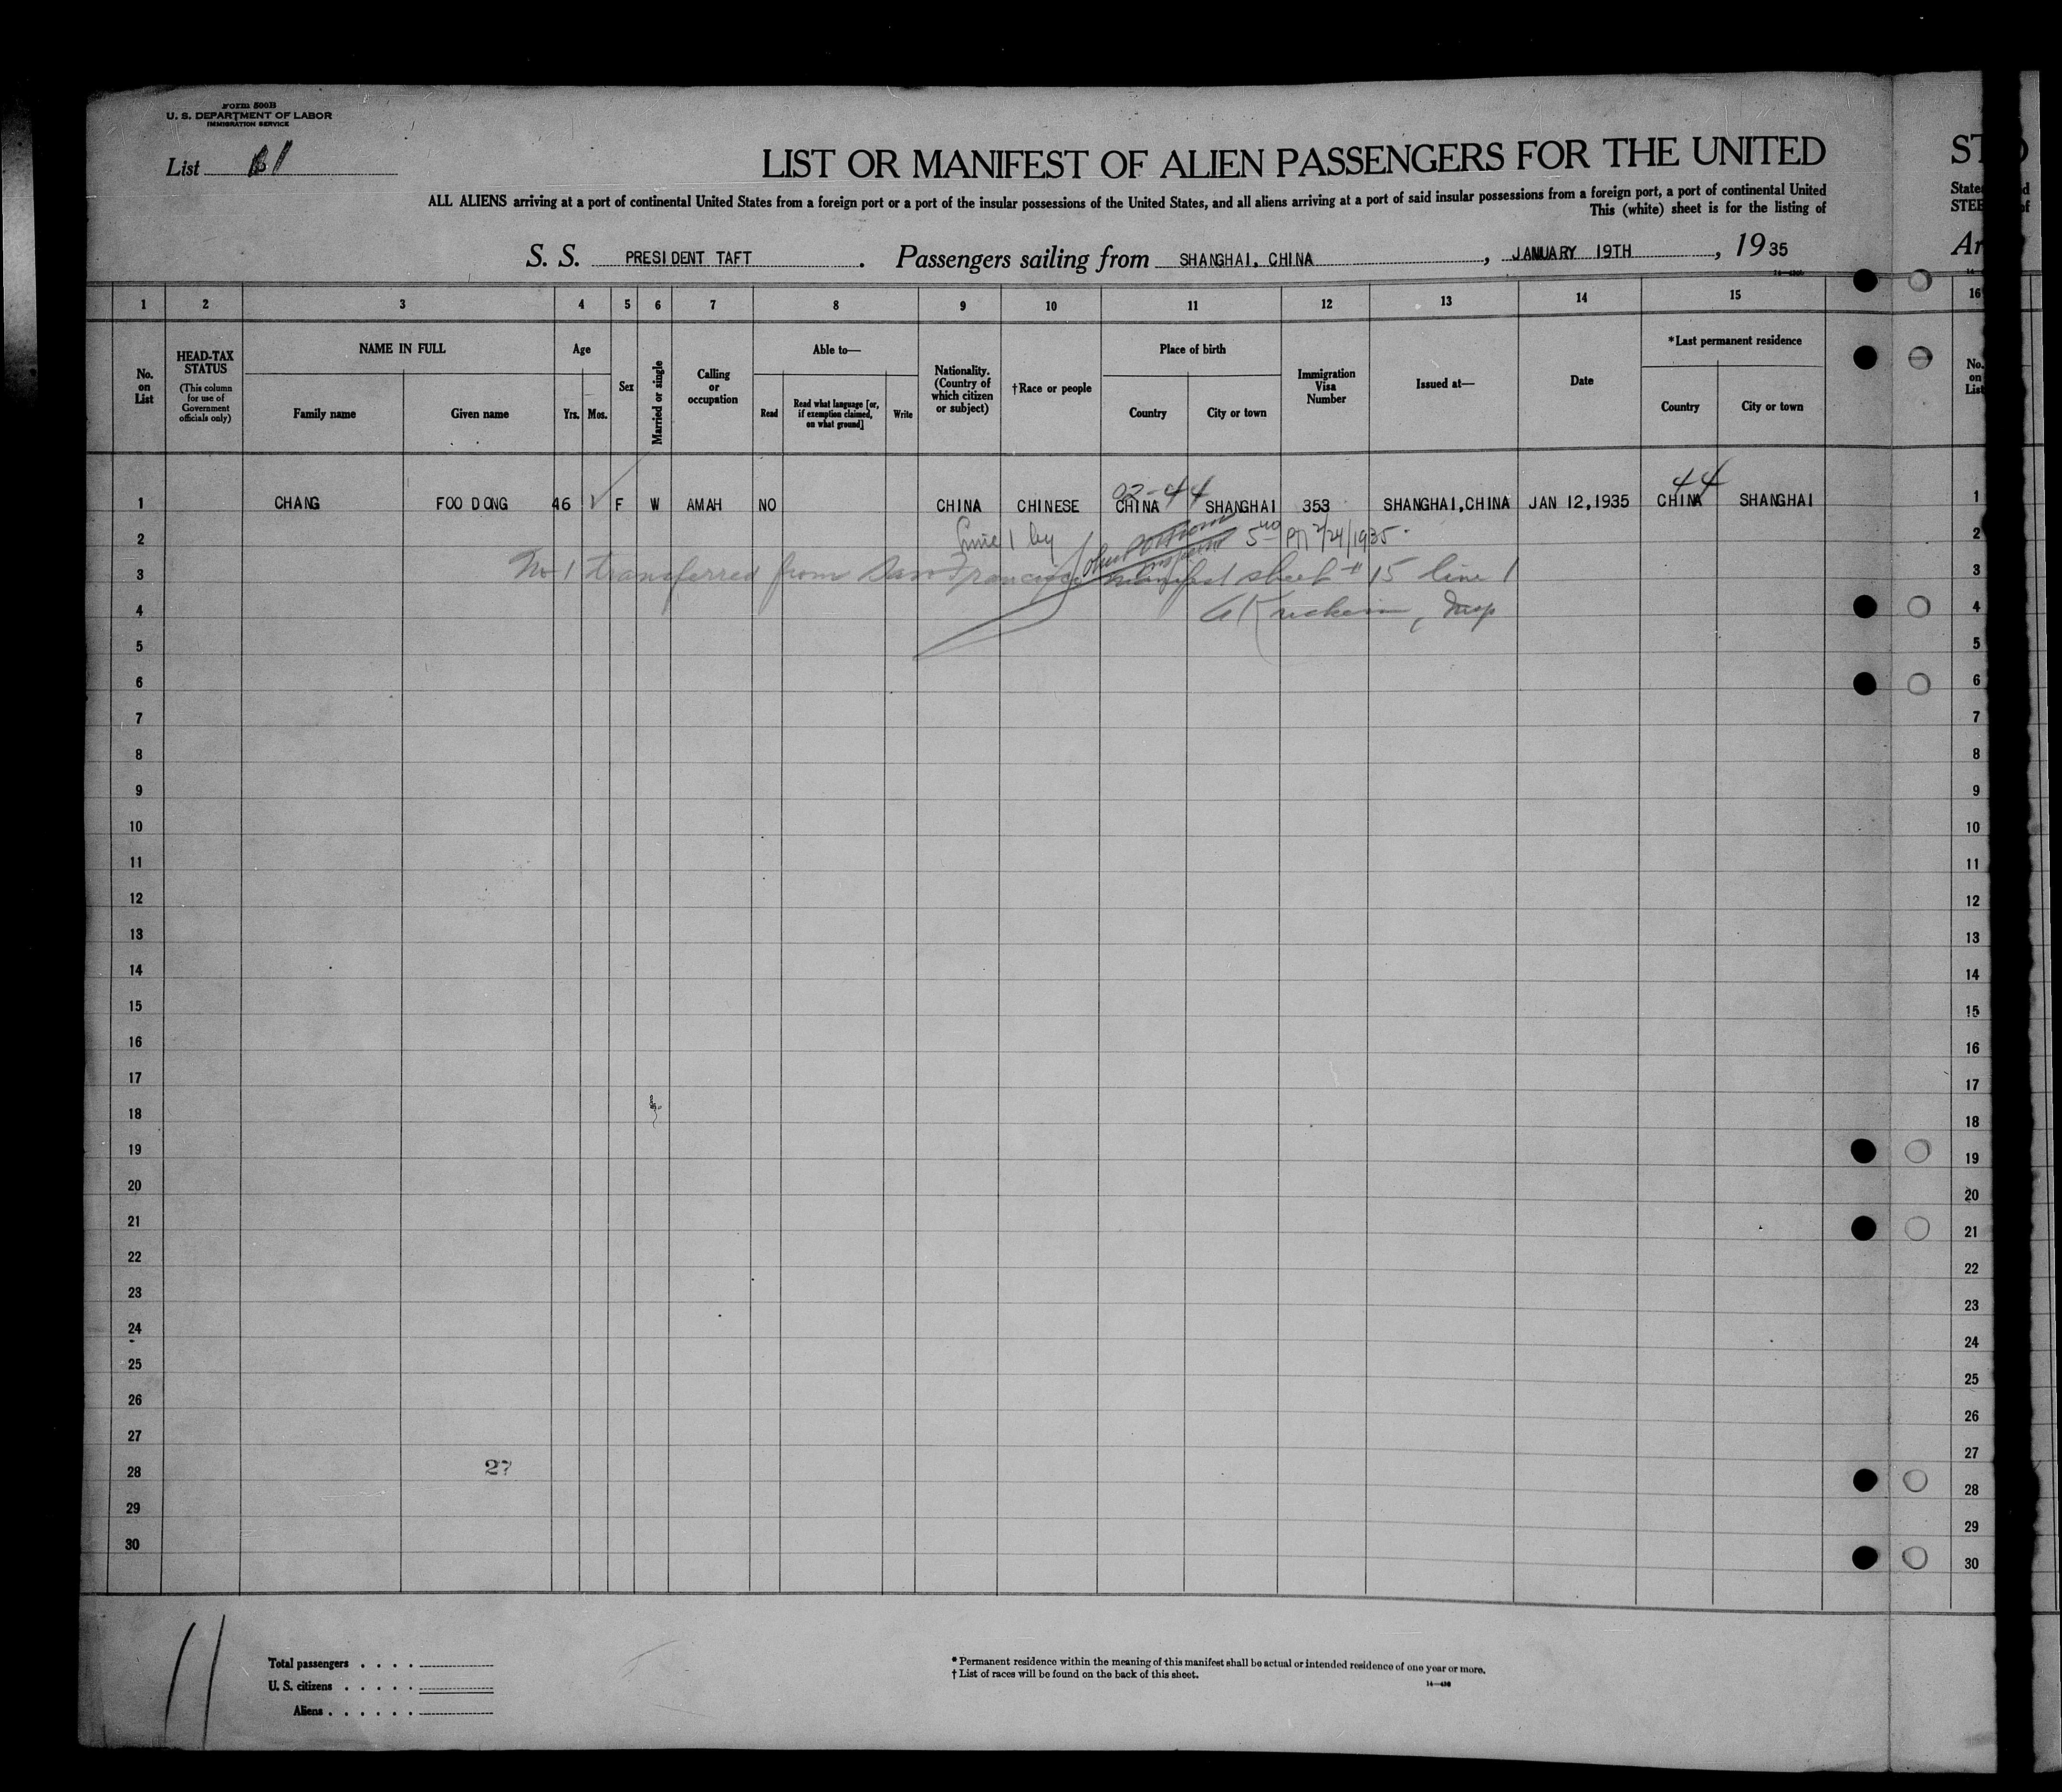 Form 500B
U. S. DEPARTMENT OF LABOR
IMMIGRATION SERVICE
List
LIST OR MANIFEST OF ALIEN PASSENGERS FOR THE UNITED
ALL ALIENS arriving at a port of continental United States from a foreign port or a port of the insular possessions of the United States, and all aliens arriving at a port of said insular possessions from a foreign port, a port of continental United
This (white) sheet is for the listing of
S. S. PRESIDENT TAFT . Passengers sailing from SHANGHAI, CHINA , JANUARY 19TH , 1935
1 2 3 4 5 6 7 8 9 10 11 12 13 14 15 16
No. on List
HEAD-TAX STATUS
(This column for use of Government officials only)
NAME IN FULL
Family name Given name
Age
Yrs. Mos.
Sex
Married or single
Calling or occupation
Able to—
Read
Read what language [or, if exemption claimed, on what ground]
Write
Nationality. (Country of which citizen or subject)
†Race or people
Place of birth
Country City or town
Immigration Visa Number
Issued at—
Date
*Last permanent residence
Country City or town
No. on List
02-44 44
1 CHANG FOO DONG 46 F W AMAH NO CHINA CHINESE CHINA SHANGHAI 353 SHANGHAI,CHINA JAN 12,1935 CHINA SHANGHAI 1
2 Line 1 by 2/24/1935 2
3 No 1 transferred from San Francisco manifest sheet # 15 line 1 3
4 Insp 4
5 5
6 6
7 7
8 8
9 9
10 10
11 11
12 12
13 13
14 14
15 15
16 16
17 17
18 18
19 19
20 20
21 21
22 22
23 23
24 24
25 25
26 26
27 27
28 27 28
29 29
30 30
Total passengers . . . .
U. S. citizens . . . . .
Aliens . . . . . .
* Permanent residence within the meaning of this manifest shall be actual or intended residence of one year or more.
† List of races will be found on the back of this sheet.